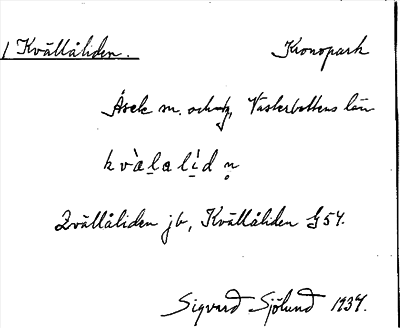 1 Kvällåliden. Kronopark
Åsele sn. och tg, Västerbottens län
kvälalidn
Kvällåliden jb, Kvällåliden G 54.
Sigvard Sjölund 1934.